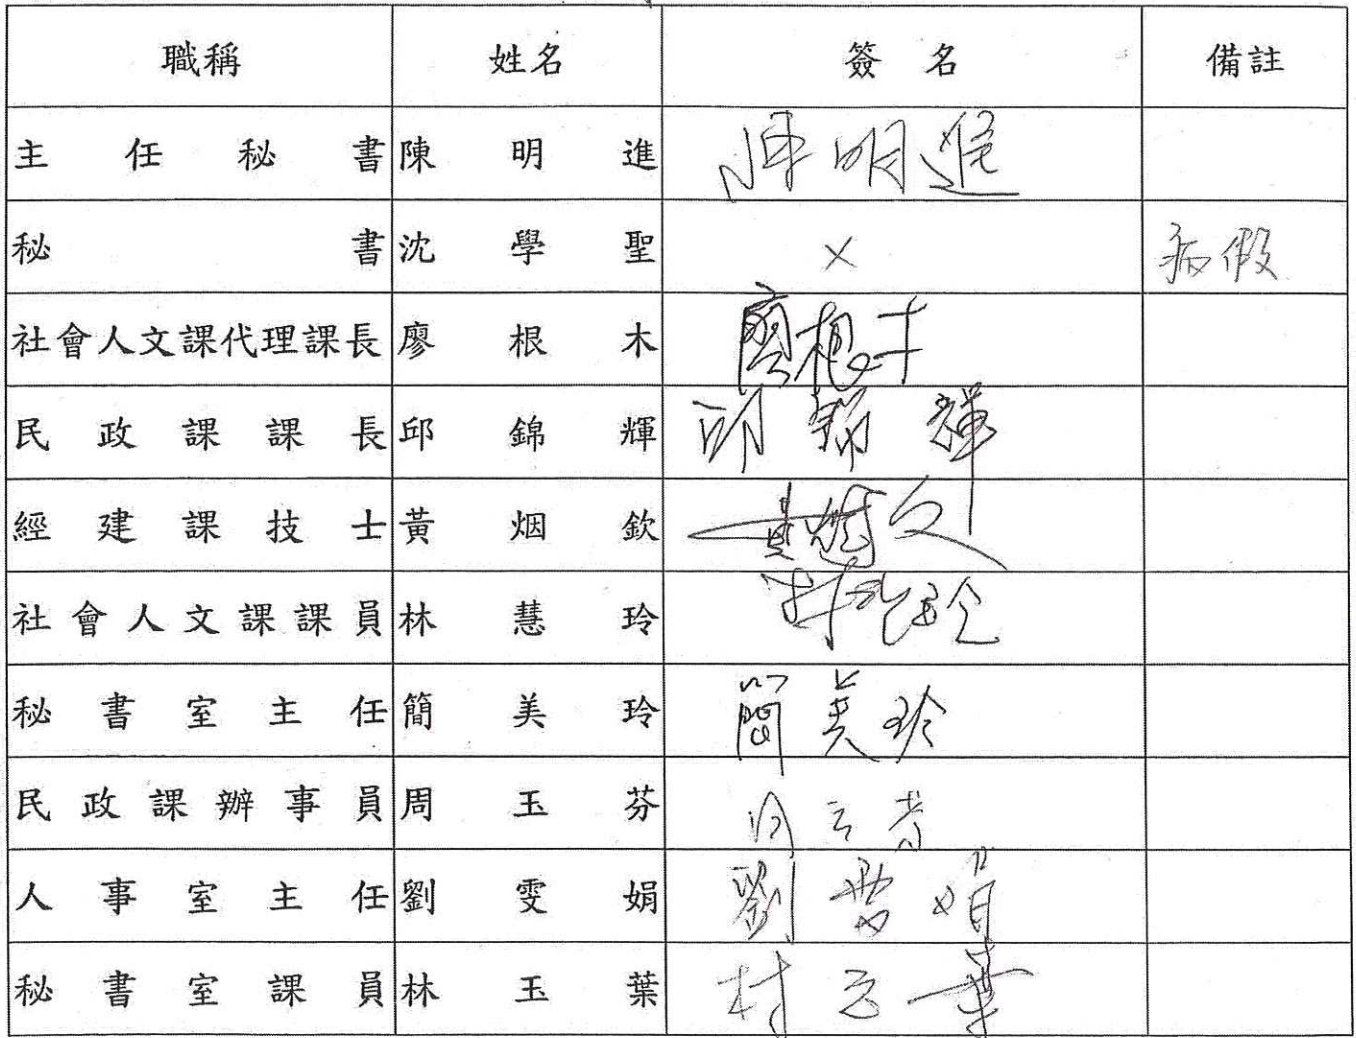 職稱 姓名 簽名 備註
主任秘書 陳明進 陳明進
秘書 沈學聖 × 病假
社會人文課代理課長 廖根木 廖根木
民政課課長 邱錦輝 邱錦輝
經建課技士 黃烟欽 黃烟欽
社會人文課課員 林慧玲 林慧玲
秘書室主任 簡美玲 簡美玲
民政課辦事員 周玉芬 周玉芬
人事室主任 劉雯娟 劉雯娟
秘書室課員 林玉葉 林玉葉